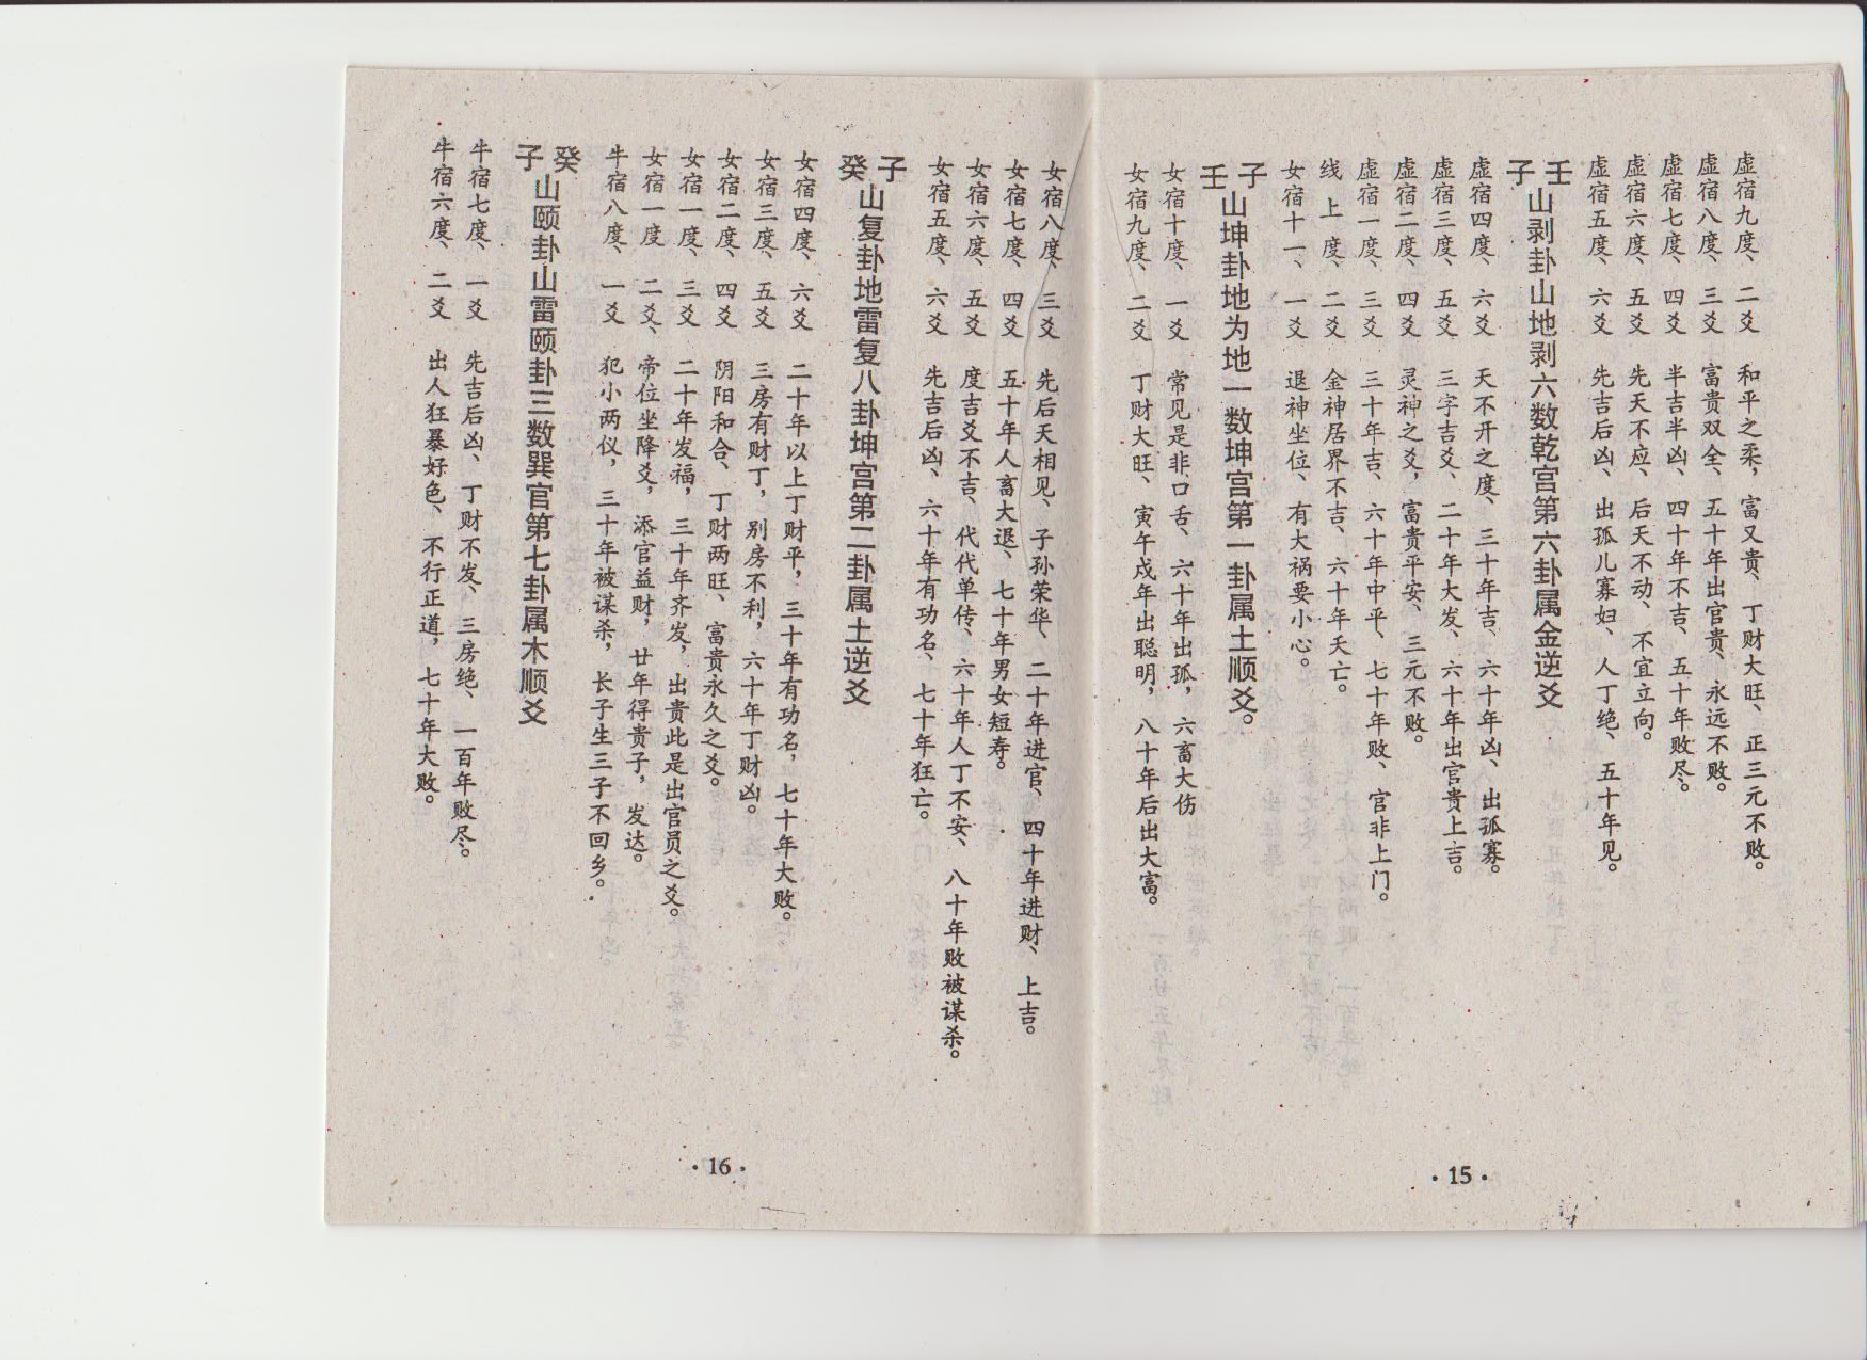 虚宿九度、二爻　和平之柔，富又贵、丁财大旺、正三元不败。
虚宿八度、三爻　富贵双全、五十年出官贵、永远不败。
虚宿七度、四爻　半吉半凶、四十年不吉、五十年败尽。
虚宿六度、五爻　先天不应、后天不动、不宜立向。
虚宿五度、六爻　先吉后凶、出孤儿寡妇、人丁绝、五十年见。
壬子山剥卦山地剥六数乾宫第六卦属金逆爻
虚宿四度、六爻　天不开之度、三十年吉、六十年凶、出孤寡。
虚宿三度、五爻　三字吉爻、二十年大发、六十年出官贵上吉。
虚宿二度、四爻　灵神之爻，富贵平安、三元不败。
虚宿一度、三爻　三十年吉、六十年中平、七十年败、官非上门。
线上度、二爻　金神居界不吉、六十年夭亡。
女宿十一、一爻　退神坐位、有大祸要小心。
子壬山坤卦地为地一数坤宫第一卦属土顺爻。
女宿十度、一爻　常见是非口舌、六十年出孤，六畜大伤
女宿九度、二爻　丁财大旺、寅午戌年出聪明，八十年后出大富。
·15·
女宿八度、三爻　先后天相见、子孙荣华、二十年进官、四十年进财、上吉。
女宿七度、四爻　五十年人畜大退、七十年男女短寿。
女宿六度、五爻　度吉爻不吉、代代单传、六十年人丁不安、八十年败被谋杀。
女宿五度、六爻　先吉后凶、六十年有功名、七十年狂亡。
子癸山复卦地雷复八卦坤宫第二卦属土逆爻
女宿四度、六爻　二十年以上丁财平，三十年有功名，七十年大败。
女宿三度、五爻　三房有财丁，别房不利，六十年丁财凶。
女宿二度、四爻　阴阳和合、丁财两旺、富贵永久之爻。
女宿一度、三爻　二十年发福，三十年齐发，出贵此是出官员之爻。
女宿一度　二爻、帝位坐降爻，添官益财，廿年得贵子，发达。
牛宿八度、一爻　犯小两仪，三十年被谋杀，长子生三子不回乡。
癸子山颐卦山雷颐卦三数巽官第七卦属木顺爻
牛宿七度、一爻　先吉后凶、丁财不发、三房绝、一百年败尽。
牛宿六度、二爻　出人狂暴好色、不行正道，七十年大败。
·16·